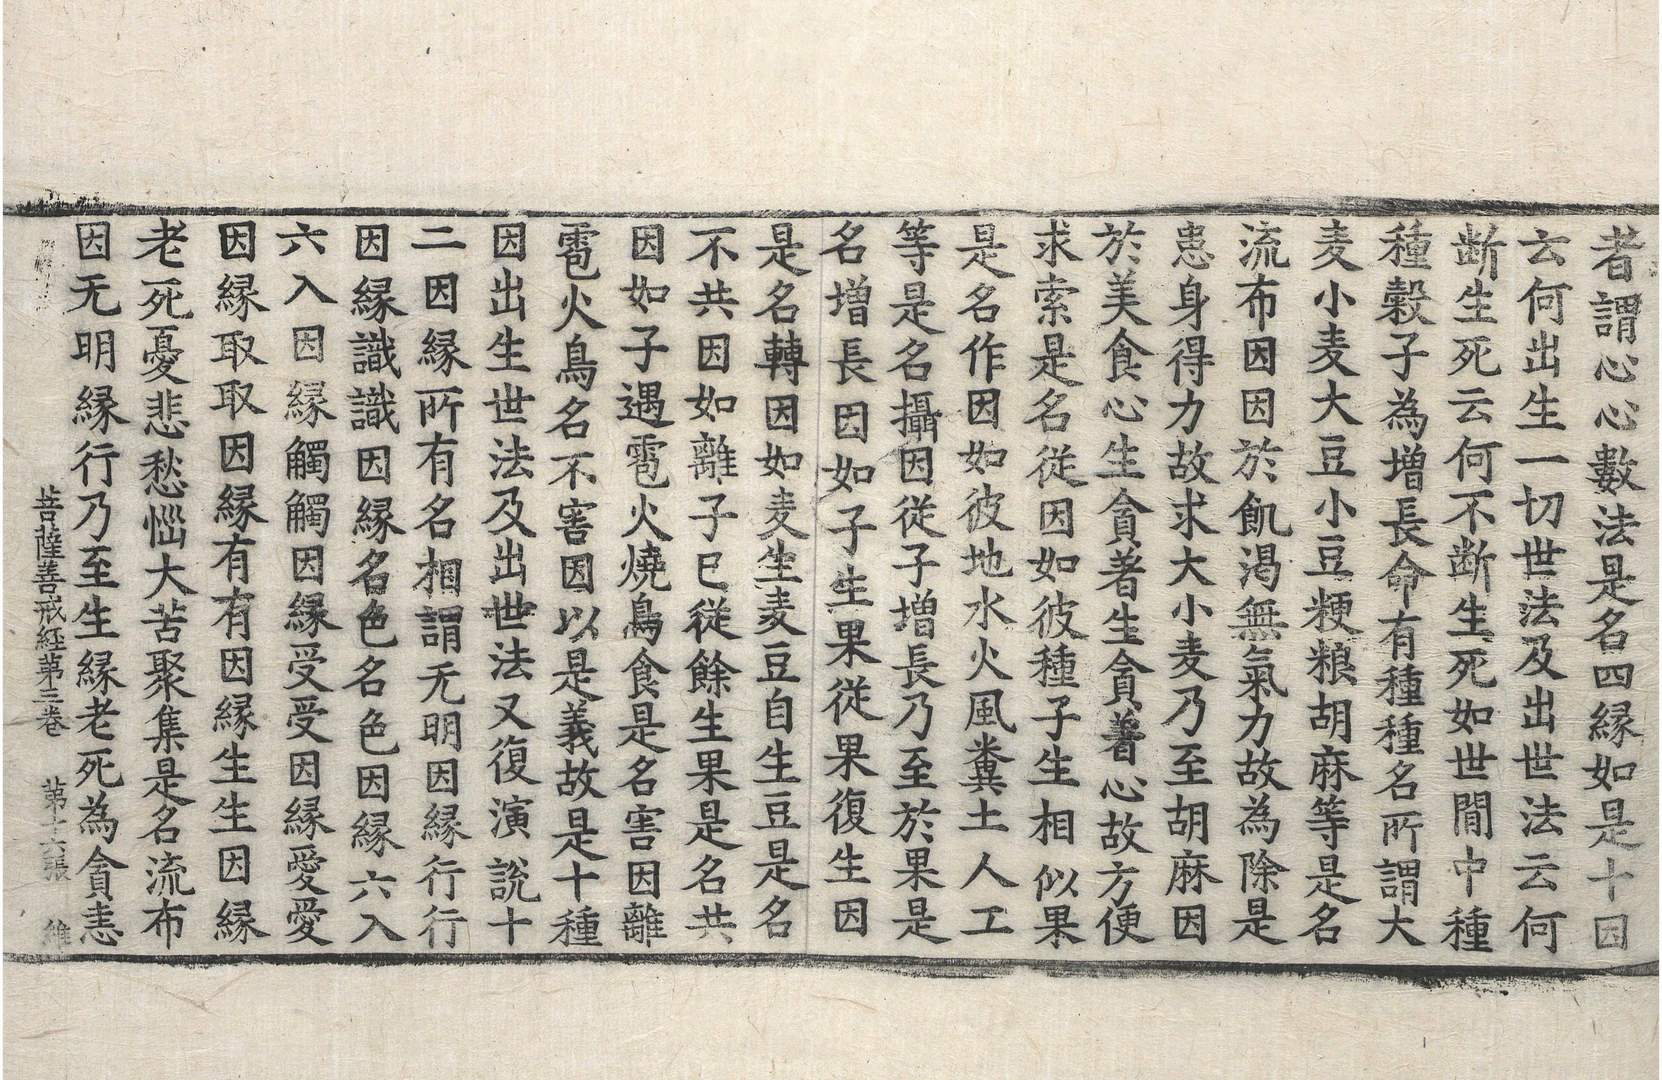 者謂心心數法是名四縁如是十因
云何出生一切世法及出世法云何
断生死云何不断生死如世間中種
種穀子為増長命有種種名所謂大
麦小麦大豆小豆粳粮胡麻等是名
流布因因於飢渇無氣力故為除是
患身得力故求大小麦乃至胡麻因
於美食心生貪著生貪著心故方便
求索是名従因如彼種子生相似果
是名作因如彼地水火風糞土人工
等是名攝因従子増長乃至於果是
名增長因如子生果従果復生因
是名轉因如麦生麦豆自生豆是名
不共因如離子已従餘生果是名共
因如子遇雹火燒鳥食是名害因離
雹火鳥名不害因以是義故是十種
因出生世法及出世法又復演說十
二因縁所有名相謂无明因縁行行
因縁識識因縁名色名色因縁六入
六入因縁觸觸因縁受受因縁愛愛
因縁取取因縁有有因縁生生因縁
老死憂悲愁惱大苦聚集是名流布
因无明縁行乃至生縁老死為貪恚
菩薩善戒經第三卷 第十六張 維